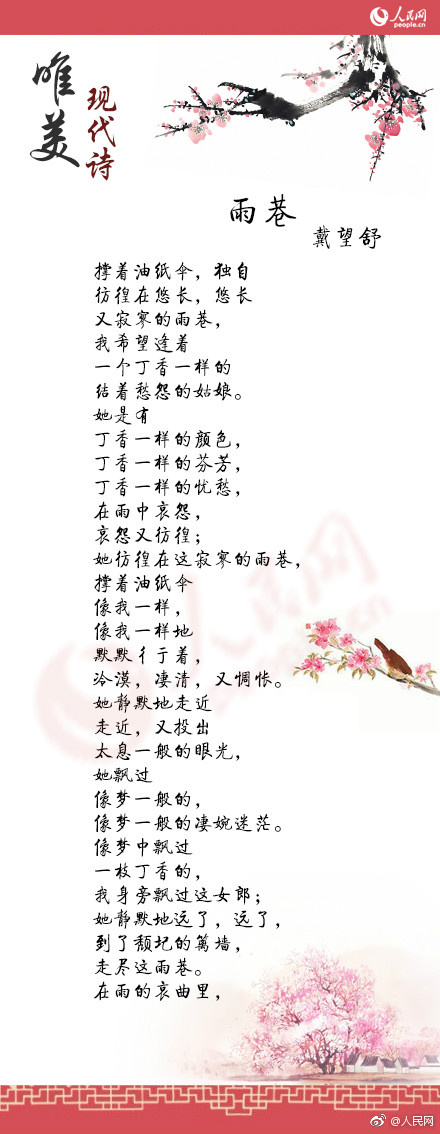 人民网
people.cn
唯美
现代诗
雨巷
戴望舒
撑着油纸伞，独自
彷徨在悠长，悠长
又寂寥的雨巷，
我希望逢着
一个丁香一样的
结着愁怨的姑娘。
她是有
丁香一样的颜色，
丁香一样的芬芳，
丁香一样的忧愁，
在雨中哀怨，
哀怨又彷徨；
她彷徨在这寂寥的雨巷，
撑着油纸伞
像我一样，
像我一样地
默默彳亍着，
冷漠，凄清，又惆怅。
她静默地走近
走近，又投出
太息一般的眼光，
她飘过
像梦一般的，
像梦一般的凄婉迷茫。
像梦中飘过
一枝丁香的，
我身旁飘过这女郎；
她静默地远了，远了，
到了颓圮的篱墙，
走尽这雨巷。
在雨的哀曲里，
人民网
people.cn
@人民网